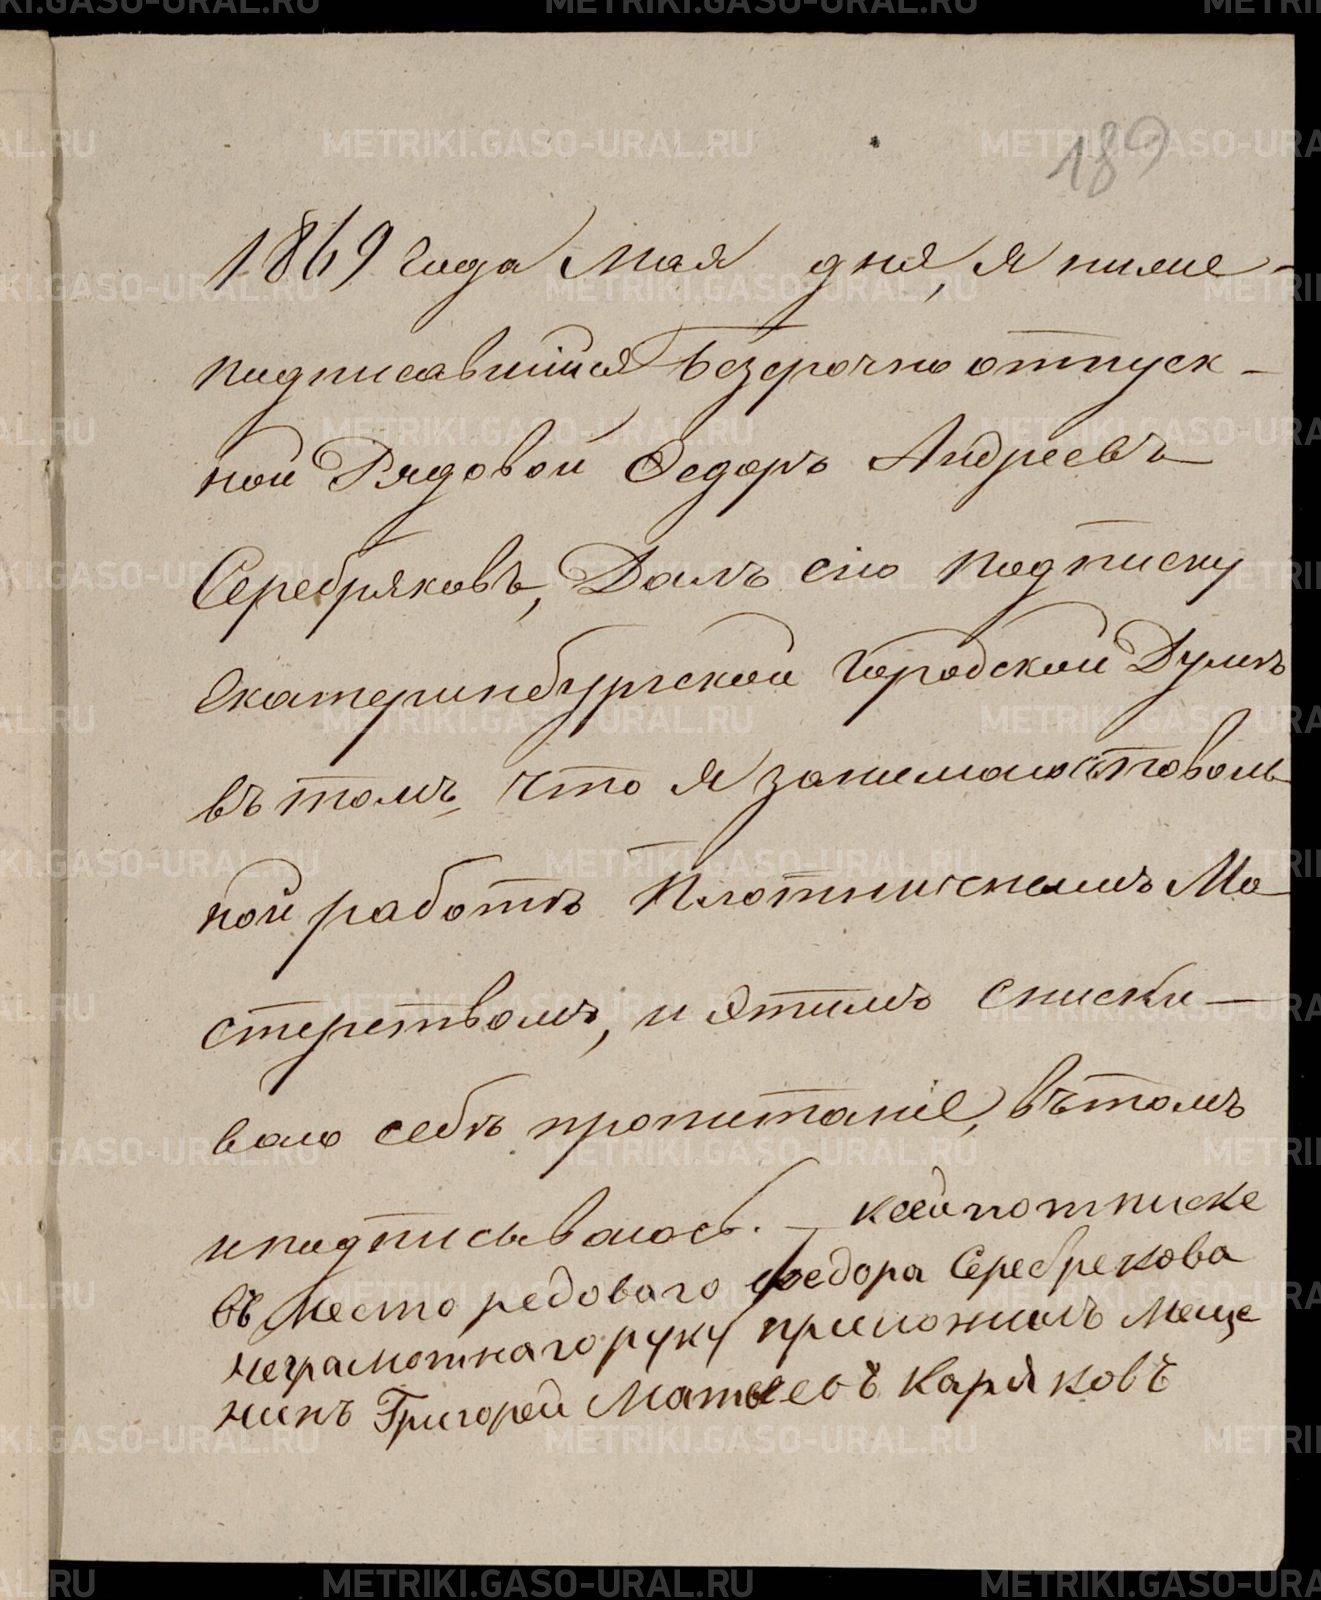 189
1869 года Мая дня, я ниже-
подписавшійся Безсрочно отпуск-
ной Рядовой Ѳедоръ Андреевъ
Серебряковъ, Далъ сію подписку
Екатеринбургской Городской Думѣ
въ томъ, что я занимаюсь поволь
ной работѣ Плотническимъ Ма
стерствомъ, и этимъ сниски-
ваю себѣ пропитаніе, въ томъ
и подписываюсь. – к сей потписке
въ место редоваго федора Серебрекова
неграмотнаго руку приложилъ меще
нинъ Григорей Матвеевъ Каряковъ
METRIKI.GASO-URAL.RU